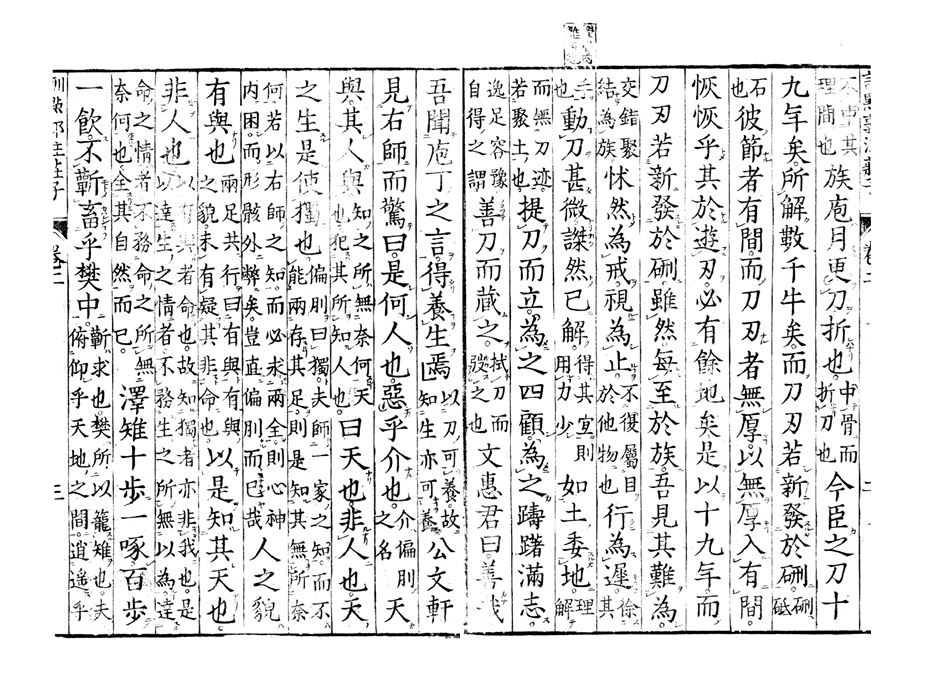 不中其理間也族庖月更刀折也中骨而折刀也今臣之刀十
九年矣所解數千牛矣而刀刃若新發於硎硎砥
石也彼節者有間而刀刃者無厚以無厚入有間
恢恢乎其於遊刃必有餘地矣是以十九年而
刀刃若新發於硎雖然每至於族吾見其難為
交錯聚結為族怵然為戒視為止不復屬目於他物也行為遲徐其
手也動刀甚微謋然已解得其宜則用力少如土委地理解
而無刀迹若聚土也提刀而立為之四顧為之躊躇滿志
逸足容豫自得之謂善刀而藏之拭刀而弢之也文惠君曰善哉
吾聞庖丁之言得養生焉以刀可養故知生亦可養公文軒
見右師而驚曰是何人也惡乎介也介偏刖之名天
與其人與知之所無奈何天也犯其所知人也曰天也非人也天
之生是使獨也偏刖曰獨夫師一家之知而不能兩存其足則是知其無所奈
何若以右師之知而必求兩全則心神內困而形骸外弊矣豈直偏刖而已哉人之貌
有與也兩足共行曰有與有與之貌未有疑其非命也以是知其天也
非人也以有與者命也故知獨者亦非我也是以達生之情者不務生之所無以為達
命之情者不務命之所無奈何也全其自然而已澤雉十步一啄百步
一飲不蘄畜乎樊中蘄求也樊所以籠雉也夫俯仰乎天地之間逍遙乎
卷二 三